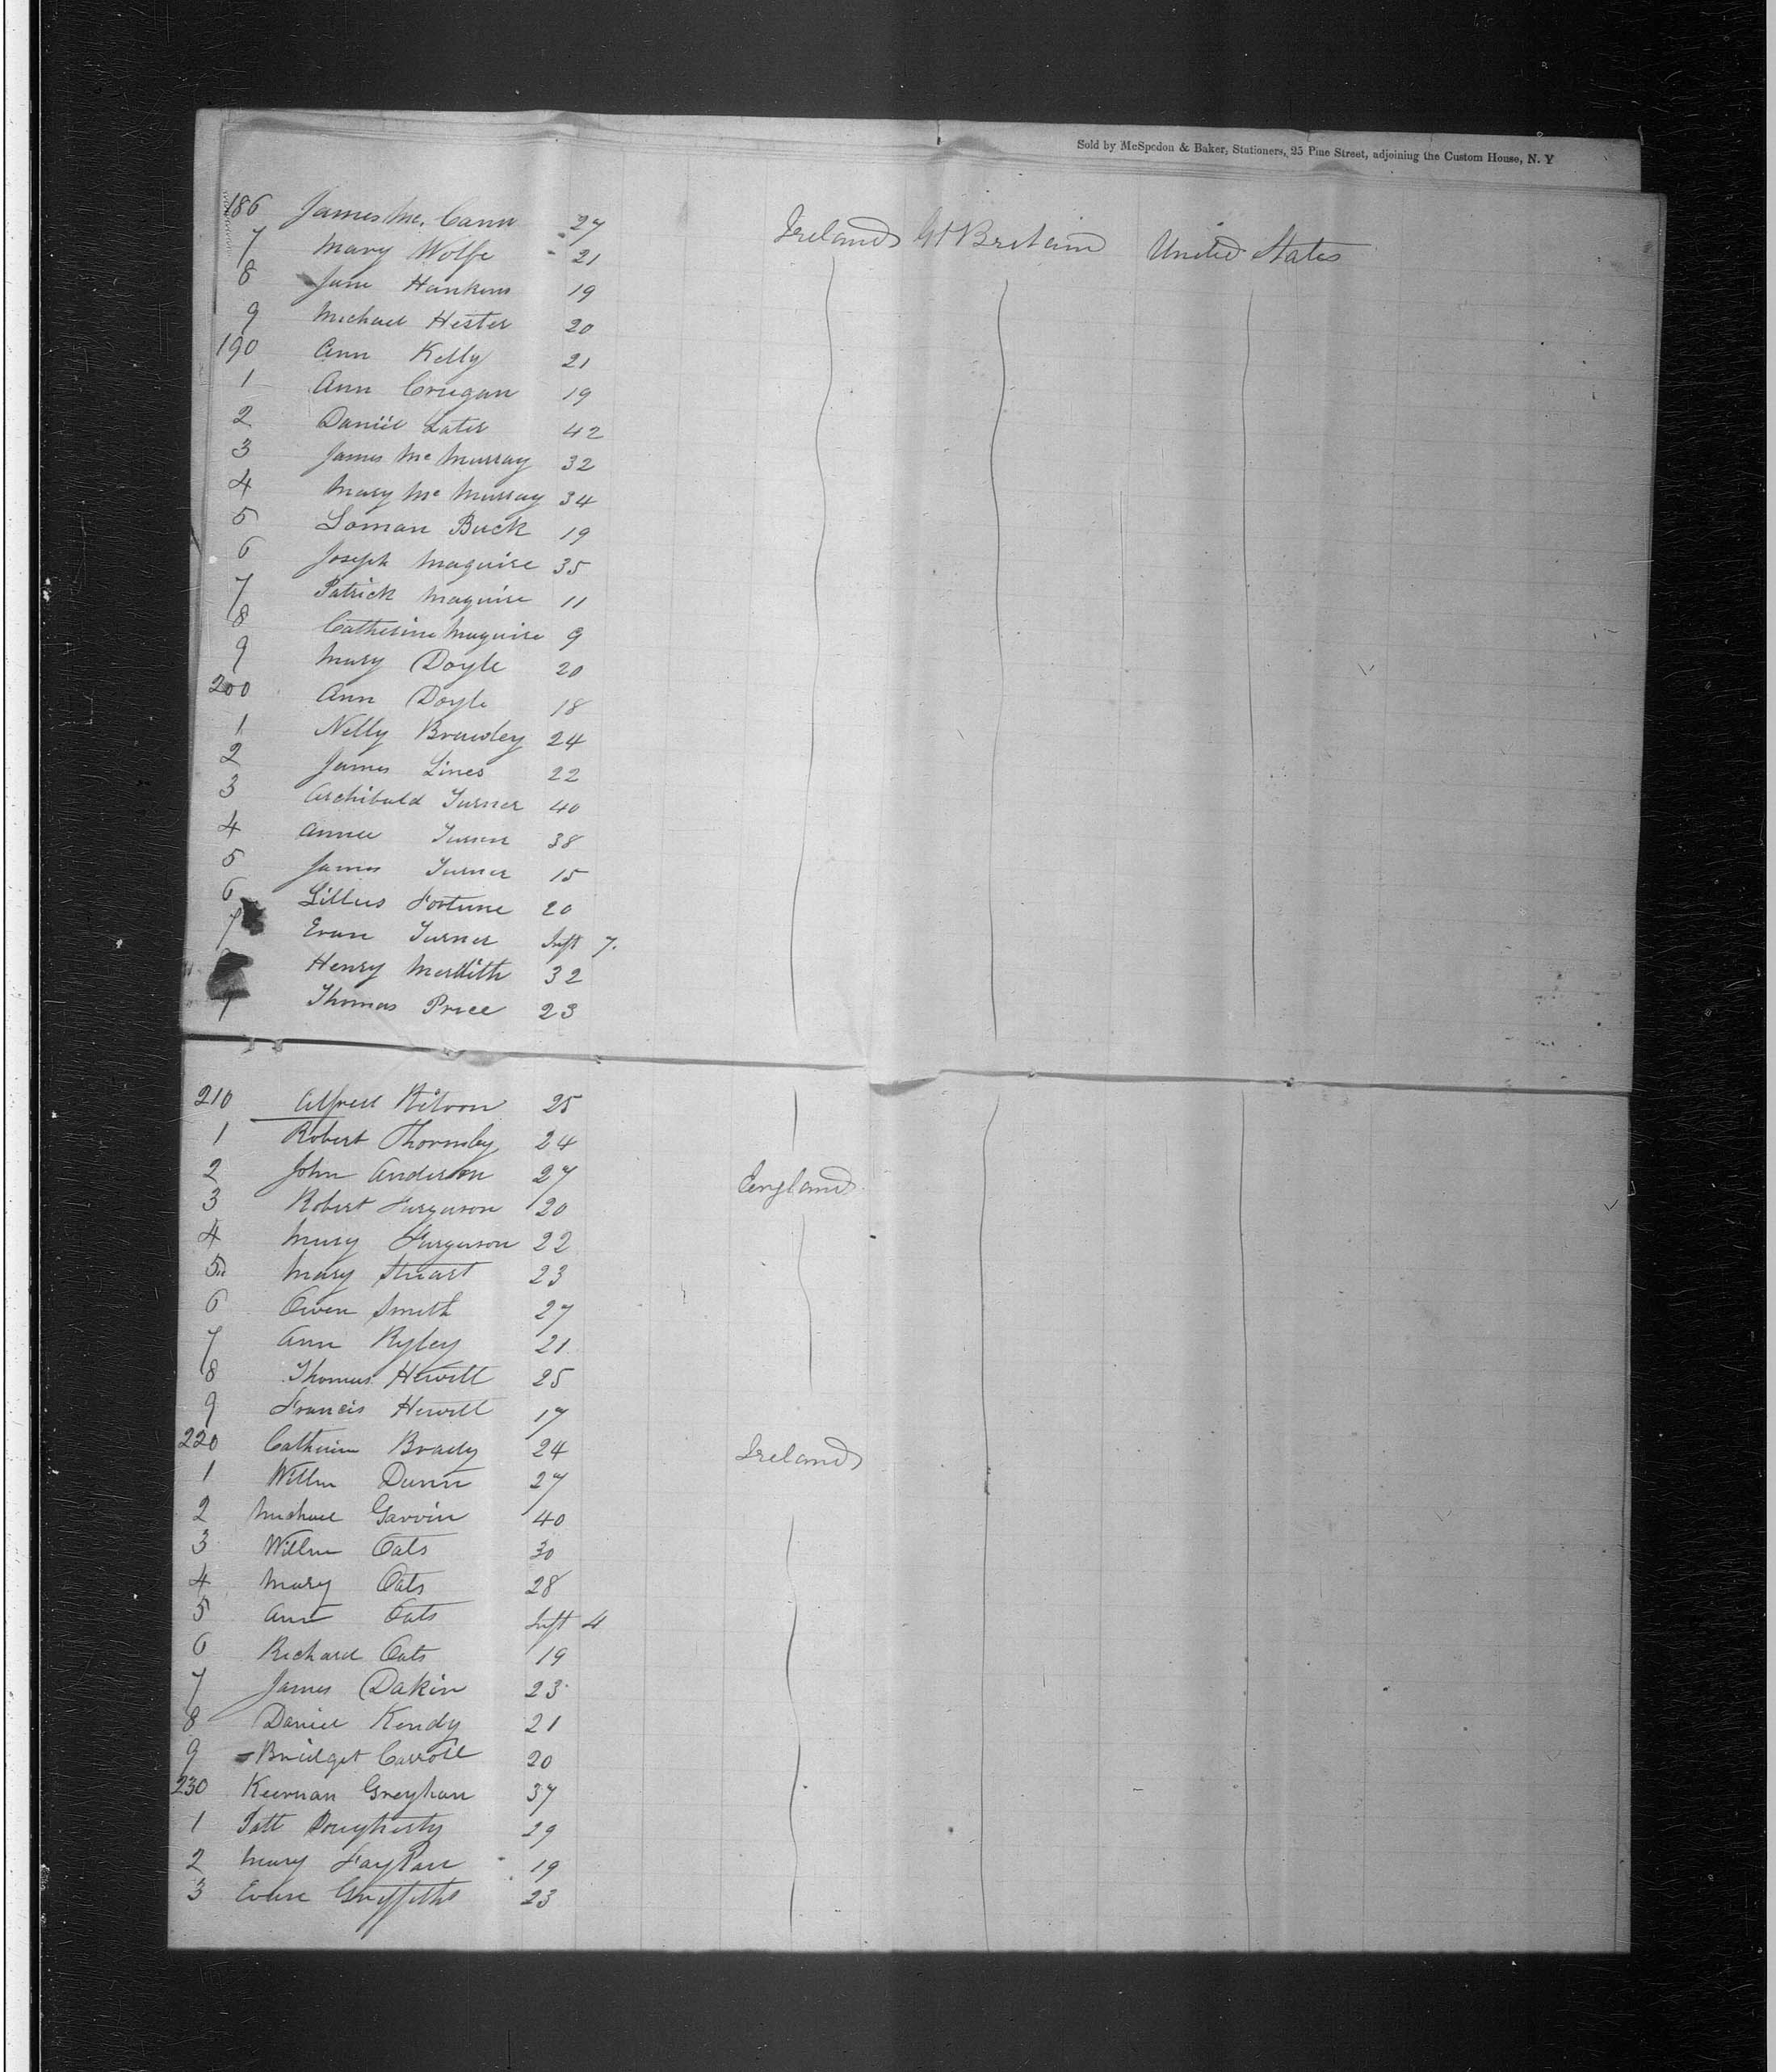 Sold by McSpedon & Baker, Stationers, 25 Pine Street, adjoining the Custom House, N. Y
186 James Mc. Cann 27 Ireland Gt Britain United States
7 Mary Wolfe 21
8 Jane Hankins 19
9 Michael Hester 20
190 Ann Kelly 21
1 Ann Criegan 19
2 Daniel Later 42
3 James Mc Murray 32
4 Mary Mc Murray 34
5 Loman Buck 19
6 Joseph Maguire 35
7 Patrick Maguire 11
8 Catherine Maguire 9
9 Mary Doyle 20
200 Ann Doyle 18
1 Nelly Brawley 24
2 James Lines 22
3 Archibald Turner 40
4 Turner 38
5 James Turner 15
6 Lillies Fortune 20
7 Evan Turner Inft 7.
Henry Meridith 32
9 Thomas Price 23
210 Alfred 25
1 Robert Thornsby 24
2 John Anderson 27 England
3 Robert Furguson 20
4 Mary Furguson 22
5 Mary Stuart 23
6 Owen Smith 27
7 Ann Ryley 21
8 Thomas Hewitt 25
9 Francis Hewitt 17
220 Catherine Brady 24 Ireland
1 Willm Dunn 27
2 Michael Garvin 40
3 Willm Oats 30
4 Mary Oats 28
5 Ann Oats Inft 4
6 Richard Oats 19
7 James Dakin 23
8 Daniel Kendy 21
9 Bridget Carroll 20
230 Keernan Greyhan 37
1 Patt Dougherty 29
2 Mary 19
3 Evan Griffiths 23